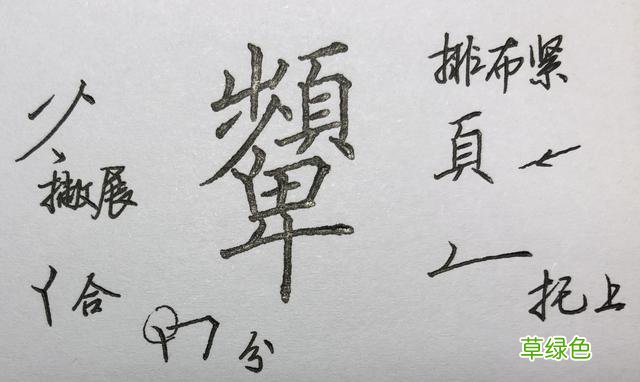 顰
排布紧
頁
撇展
合
分
托上
草绿色